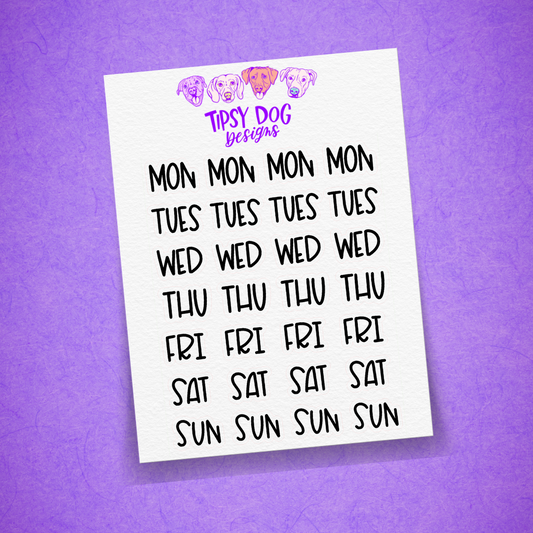 TIPSY DOG
Designs
MON MON MON MON
TUES TUES TUES TUES
WED WED WED WED
THU THU THU THU
FRI FRI FRI FRI
SAT SAT SAT SAT
SUN SUN SUN SUN